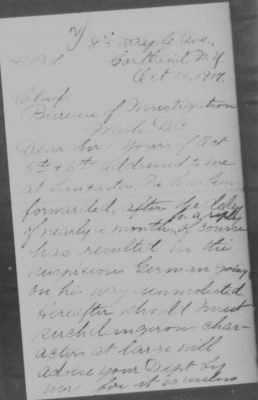 Maple Ave.,
Cortland N.Y.
Oct 19, 1917.
Chief
Bureau of Investigation
Wash D.C.
Dear Sir: Yours of Oct
4th & 6th addressed to me
at Lancaster, Pa has been
forwarded, after the delay
for a reply
of nearly a month, of course
has resulted in the
suspicious German going
on his way unmolested.
Hereafter should I meet
such dangerous char-
acters at large will
advise your Dept by
for it is